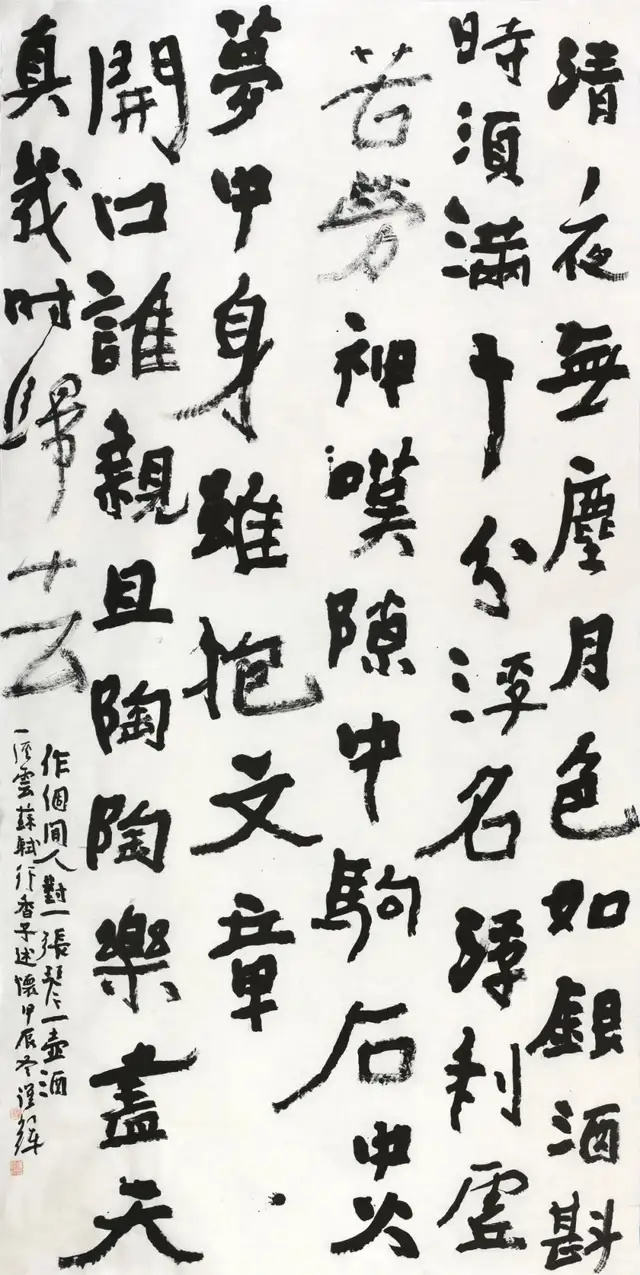 清夜無塵月色如銀酒斟
時須滿十分浮名浮利虛
苦勞神嘆隙中駒石中火
夢中身雖抱文章
開口誰親且陶陶樂盡天
真幾時歸去
作個閒人對一張琴一壺酒
一溪雲蘇軾行香子述懷甲辰冬